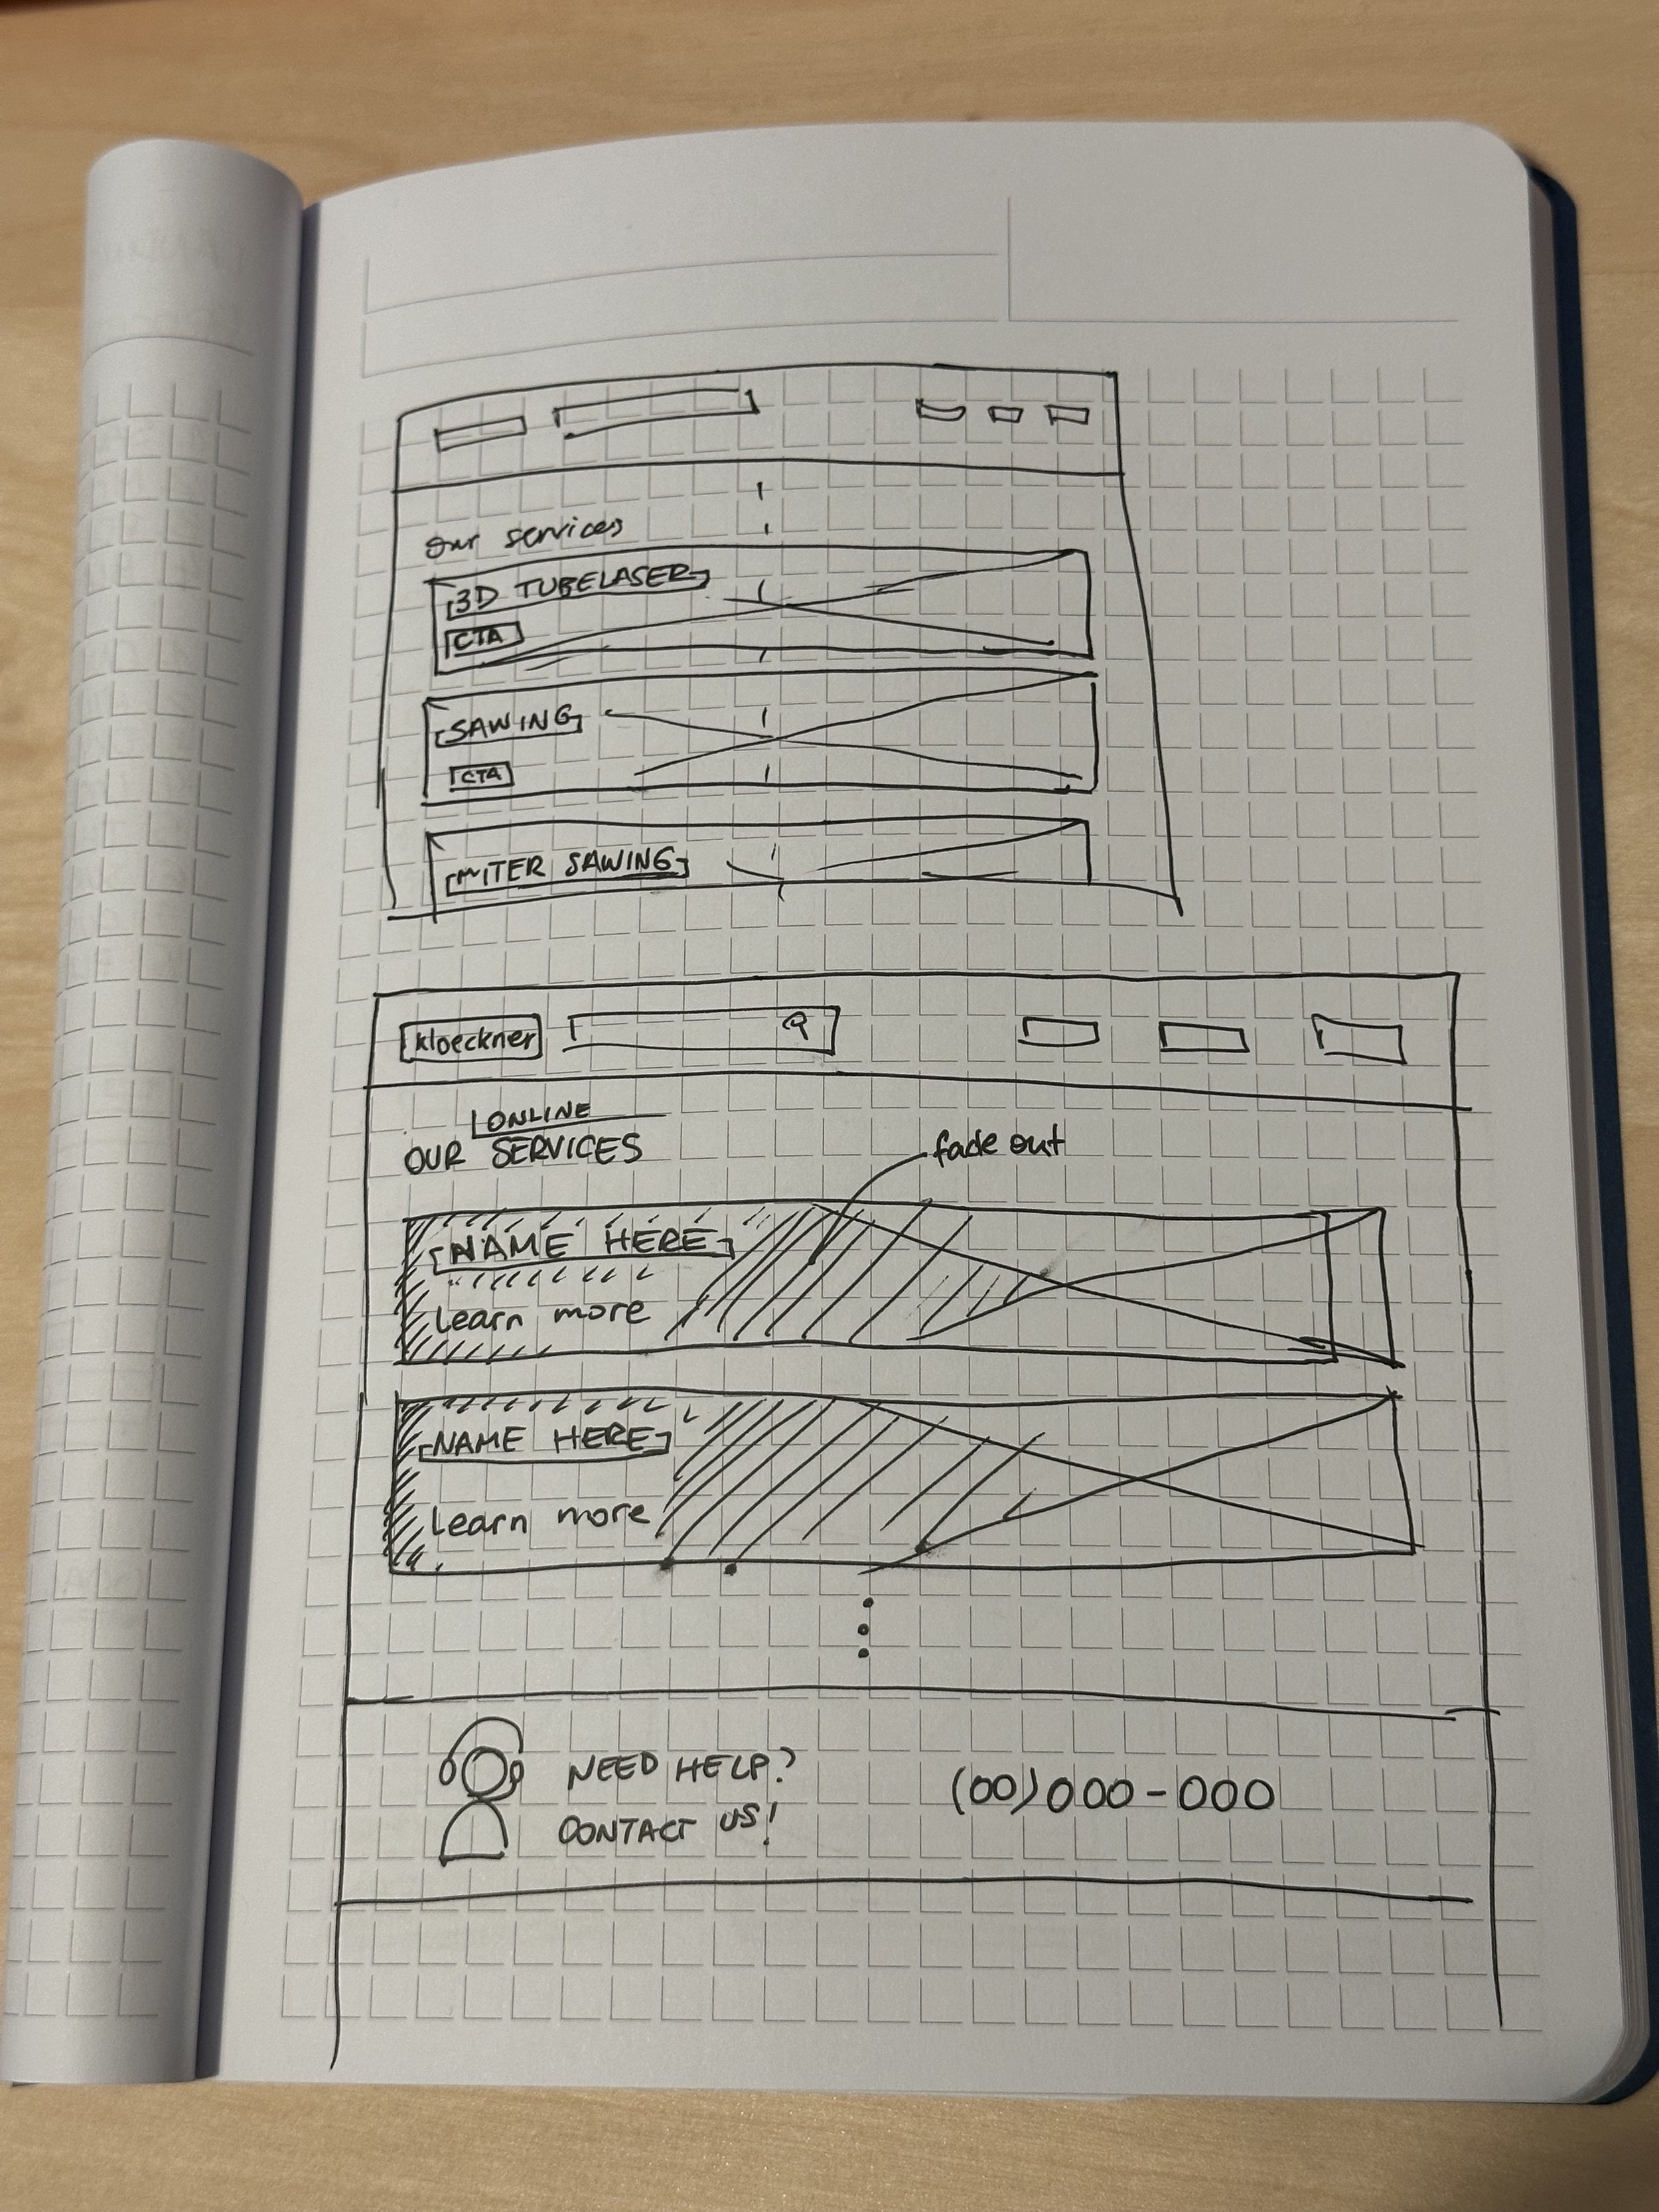 our services
3D TUBELASER
CTA
SAWING
CTA
MITER SAWING
kloeckner
ONLINE
OUR SERVICES
fade out
NAME HERE
Learn more
NAME HERE
Learn more
NEED HELP?
CONTACT US!
(00)000-000